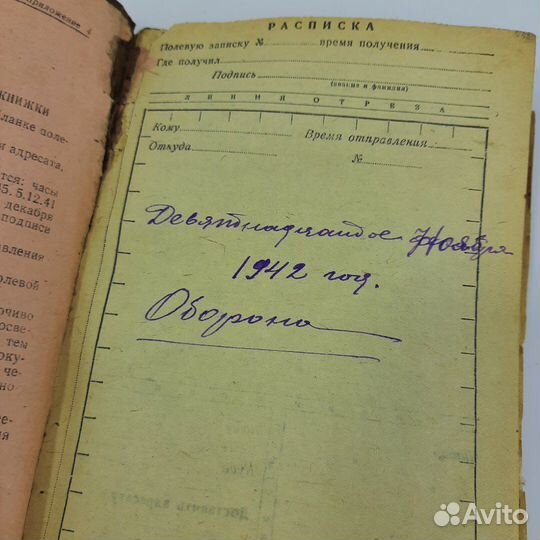 Приложение 4
КНИЖКИ
бланке поле-
и адресата,
тся: часы
45. 5.12.41
декабря
подписи
авления
олевой
очиво
осве-
тем
оку-
че-
но
ее-
ия
РАСПИСКА
Полевую записку № время получения
Где получил
Подпись
(звание и фамилия)
ЛИНИЯ ОТРЕЗА
Кому Время отправления
Откуда №
Девятнадцатое Ноября
1942 год.
Оборона
Доставить адресату
Avito